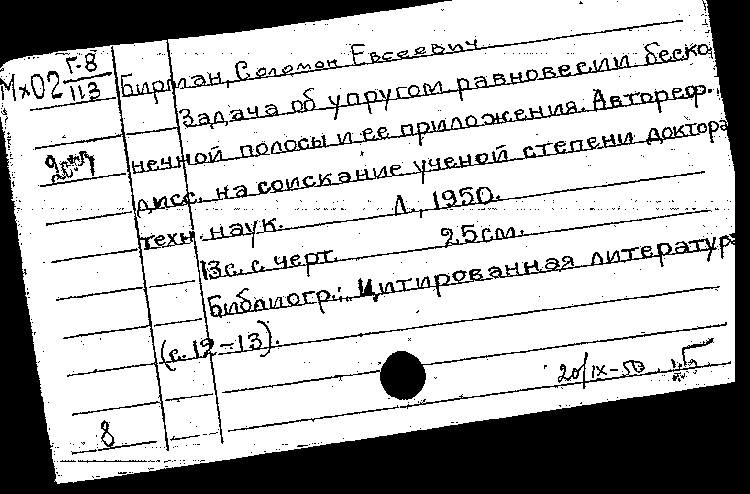 Мх02 Г-8/113
Бирман, Соломон Евсеевич
Задача об упругом равновесии беско
нечной полосы и ее приложения. Автореф.
дисс. на соискание ученой степени доктора
техн. наук. Л., 1950.
13с. с черт. 25см.
Библиогр.: Цитированная литература
(с. 12-13).
20/IX-50
8